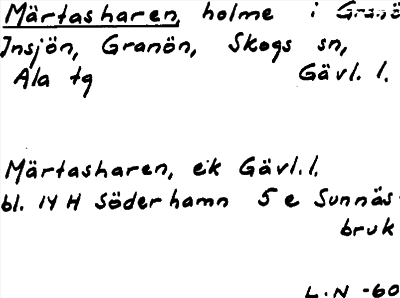 Märtasharen, holme i Granö
Insjön, Granön, Skogs sn,
Ala tg Gävl. l.
Märtasharen, ek Gävl. l.
bl. 14 H Söderhamn 5 e Sunnäs-
bruk
L. N -60